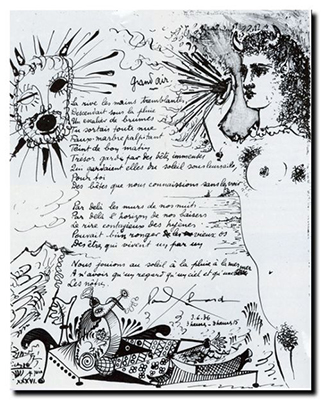 Grand air
La rive les mains tremblantes
Descendant sous la pluie
Un escalier de brumes
Tu sortais toute nue
Faux marbre palpitant
Teint de bon matin
Trésor gardé par des bêtes immenses
Qui gardaient elles du soleil sous leurs ailes
Pour toi
Des bêtes que nous connaissions sans les voir
Par delà les murs de nos nuits
Par delà l'horizon de nos baisers
Le rire contagieux des hyènes
Pouvait bien ronger les os
Des êtres qui vivent un par un
Nous jouions au soleil à la pluie à la mer
A n'avoir qu'un regard qu'un ciel et qu'une mer
Les nôtres.
Paul Eluard
3.6.36
3 heures
XXXVI.